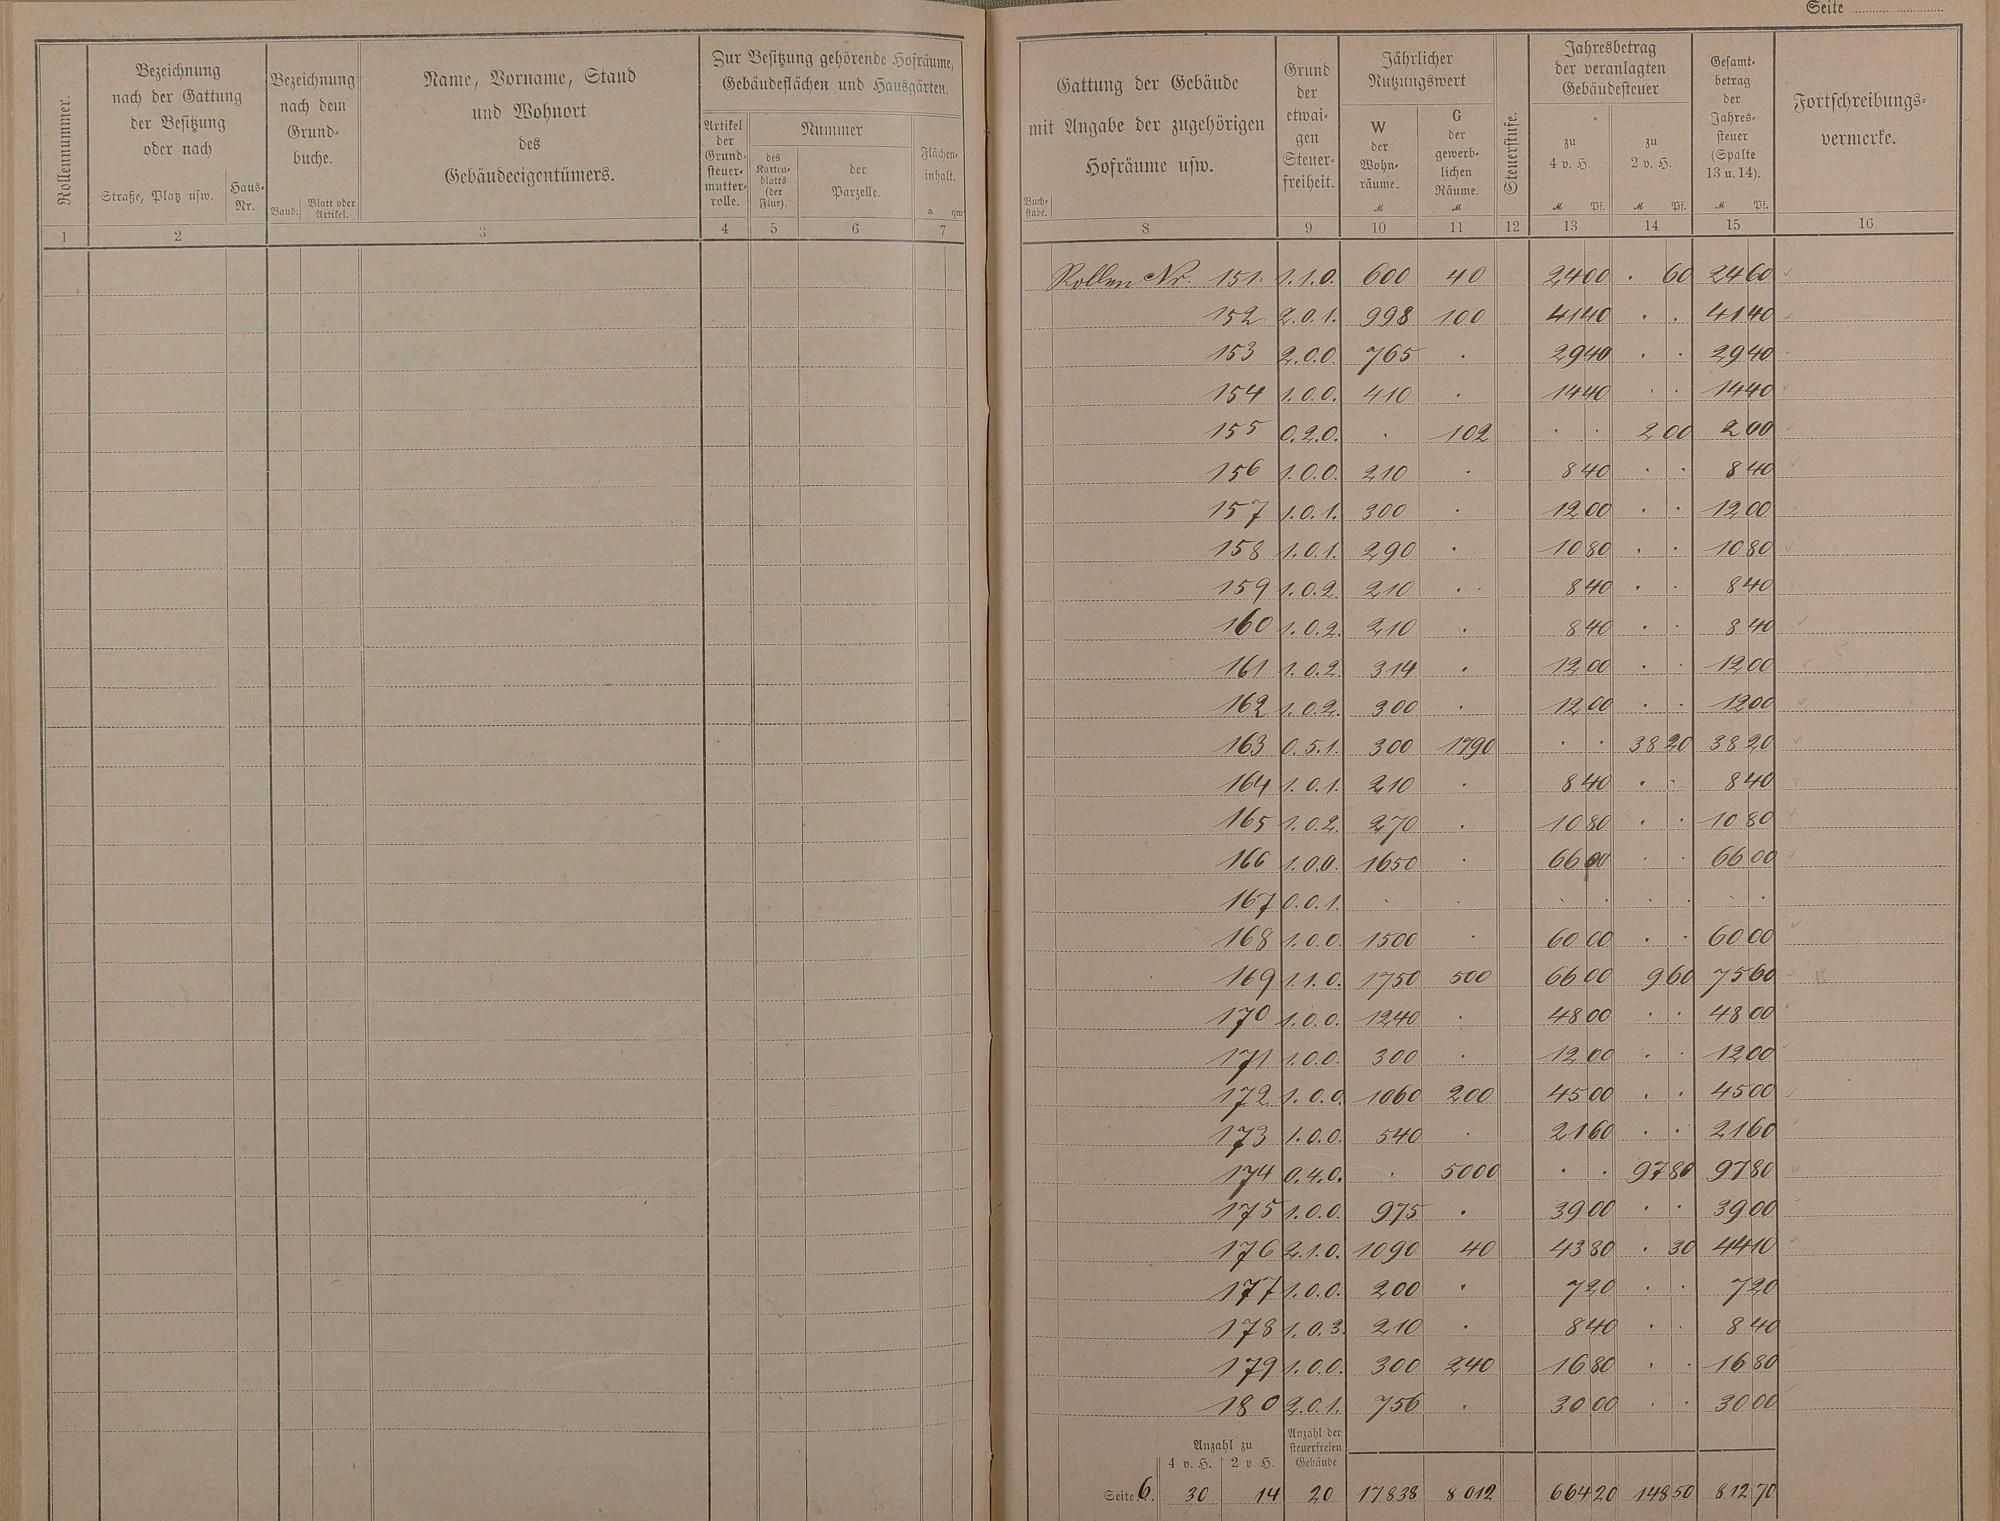 Seite
Rollennummer.
Bezeichnung
nach der Gattung
der Besitzung
oder nach
Straße, Platz usw.
Haus-
Nr.
Bezeichnung
nach dem
Grund-
buche.
Band.
Blatt oder
Artikel.
Name, Vorname, Stand
und Wohnort
des
Gebäudeeigentümers.
Zur Besitzung gehörende Hofräume,
Gebäudeflächen und Hausgärten.
Artikel
der
Grund-
steuer-
mutter-
rolle.
Nummer
des
Karten-
blatts
(der
Flur).
der
Parzelle.
Flächen-
inhalt.
a qm
1 2 3 4 5 6 7
Gattung der Gebäude
mit Angabe der zugehörigen
Hofräume usw.
Buch-
stabe.
Grund
der
etwai-
gen
Steuer-
freiheit.
Jährlicher
Nutzungswert
W
der
Wohn-
räume.
M
G
der
gewerb-
lichen
Räume.
M
Steuerstufe.
Jahresbetrag
der veranlagten
Gebäudesteuer
zu
4 v. H.
M Pf.
zu
2 v. H.
M Pf.
Gesamt-
betrag
der
Jahres-
steuer
(Spalte
13 u. 14).
M Pf.
Fortschreibungs-
vermerke.
8 9 10 11 12 13 14 15 16
Rollen Nr. 151. 1.1.0. 600 40 24 00 . 60 24 60
152 2.0.1. 998 100 41 40 . . 41 40
153 2.0.0. 765 . 29 40 . . 29 40
154 1.0.0. 410 . 14 40 . . 14 40
155 0.2.0. . 102 . . 2 00 2 00
156 1.0.0. 210 . 8 40 . . 8 40
157 1.0.1. 300 . 12 00 . . 12 00
158 1.0.1. 290 . 10 80 . . 10 80
159 1.0.2. 210 . 8 40 . . 8 40
160 1.0.2. 210 . 8 40 . . 8 40
161 1.0.2. 314 . 12 00 . . 12 00
162 1.0.2. 300 . 12 00 . . 12 00
163 0.5.1. 300 1790 . . 38 20 38 20
164 1.0.1. 210 . 8 40 . . 8 40
165 1.0.2. 270 . 10 80 . . 10 80
166 1.0.0. 1650 . 66 00 . . 66 00
167 0.0.1. . . . . . . . .
168 1.0.0. 1500 . 60 00 . . 60 00
169 1.1.0. 1750 500 66 00 9 60 75 60
170 1.0.0. 1240 . 48 00 . . 48 00
171 1.0.0. 300 . 12 00 . . 12 00
172 1.0.0. 1060 200 45 00 . . 45 00
173 1.0.0. 540 . 21 60 . . 21 60
174 0.4.0. . 5000 . . 97 80 97 80
175 1.0.0. 975 . 39 00 . . 39 00
176 2.1.0. 1090 40 43 80 . 30 44 10
177 1.0.0. 200 . 7 20 . . 7 20
178 1.0.3. 210 . 8 40 . . 8 40
179 1.0.0. 300 240 16 80 . . 16 80
180 2.0.1. 756 . 30 00 . . 30 00
Anzahl zu
4 v. H. 2 v. H.
Anzahl der
steuerfreien
Gebäude
Seite 6. 30 14 20 17838 8012 664 20 148 50 812 70